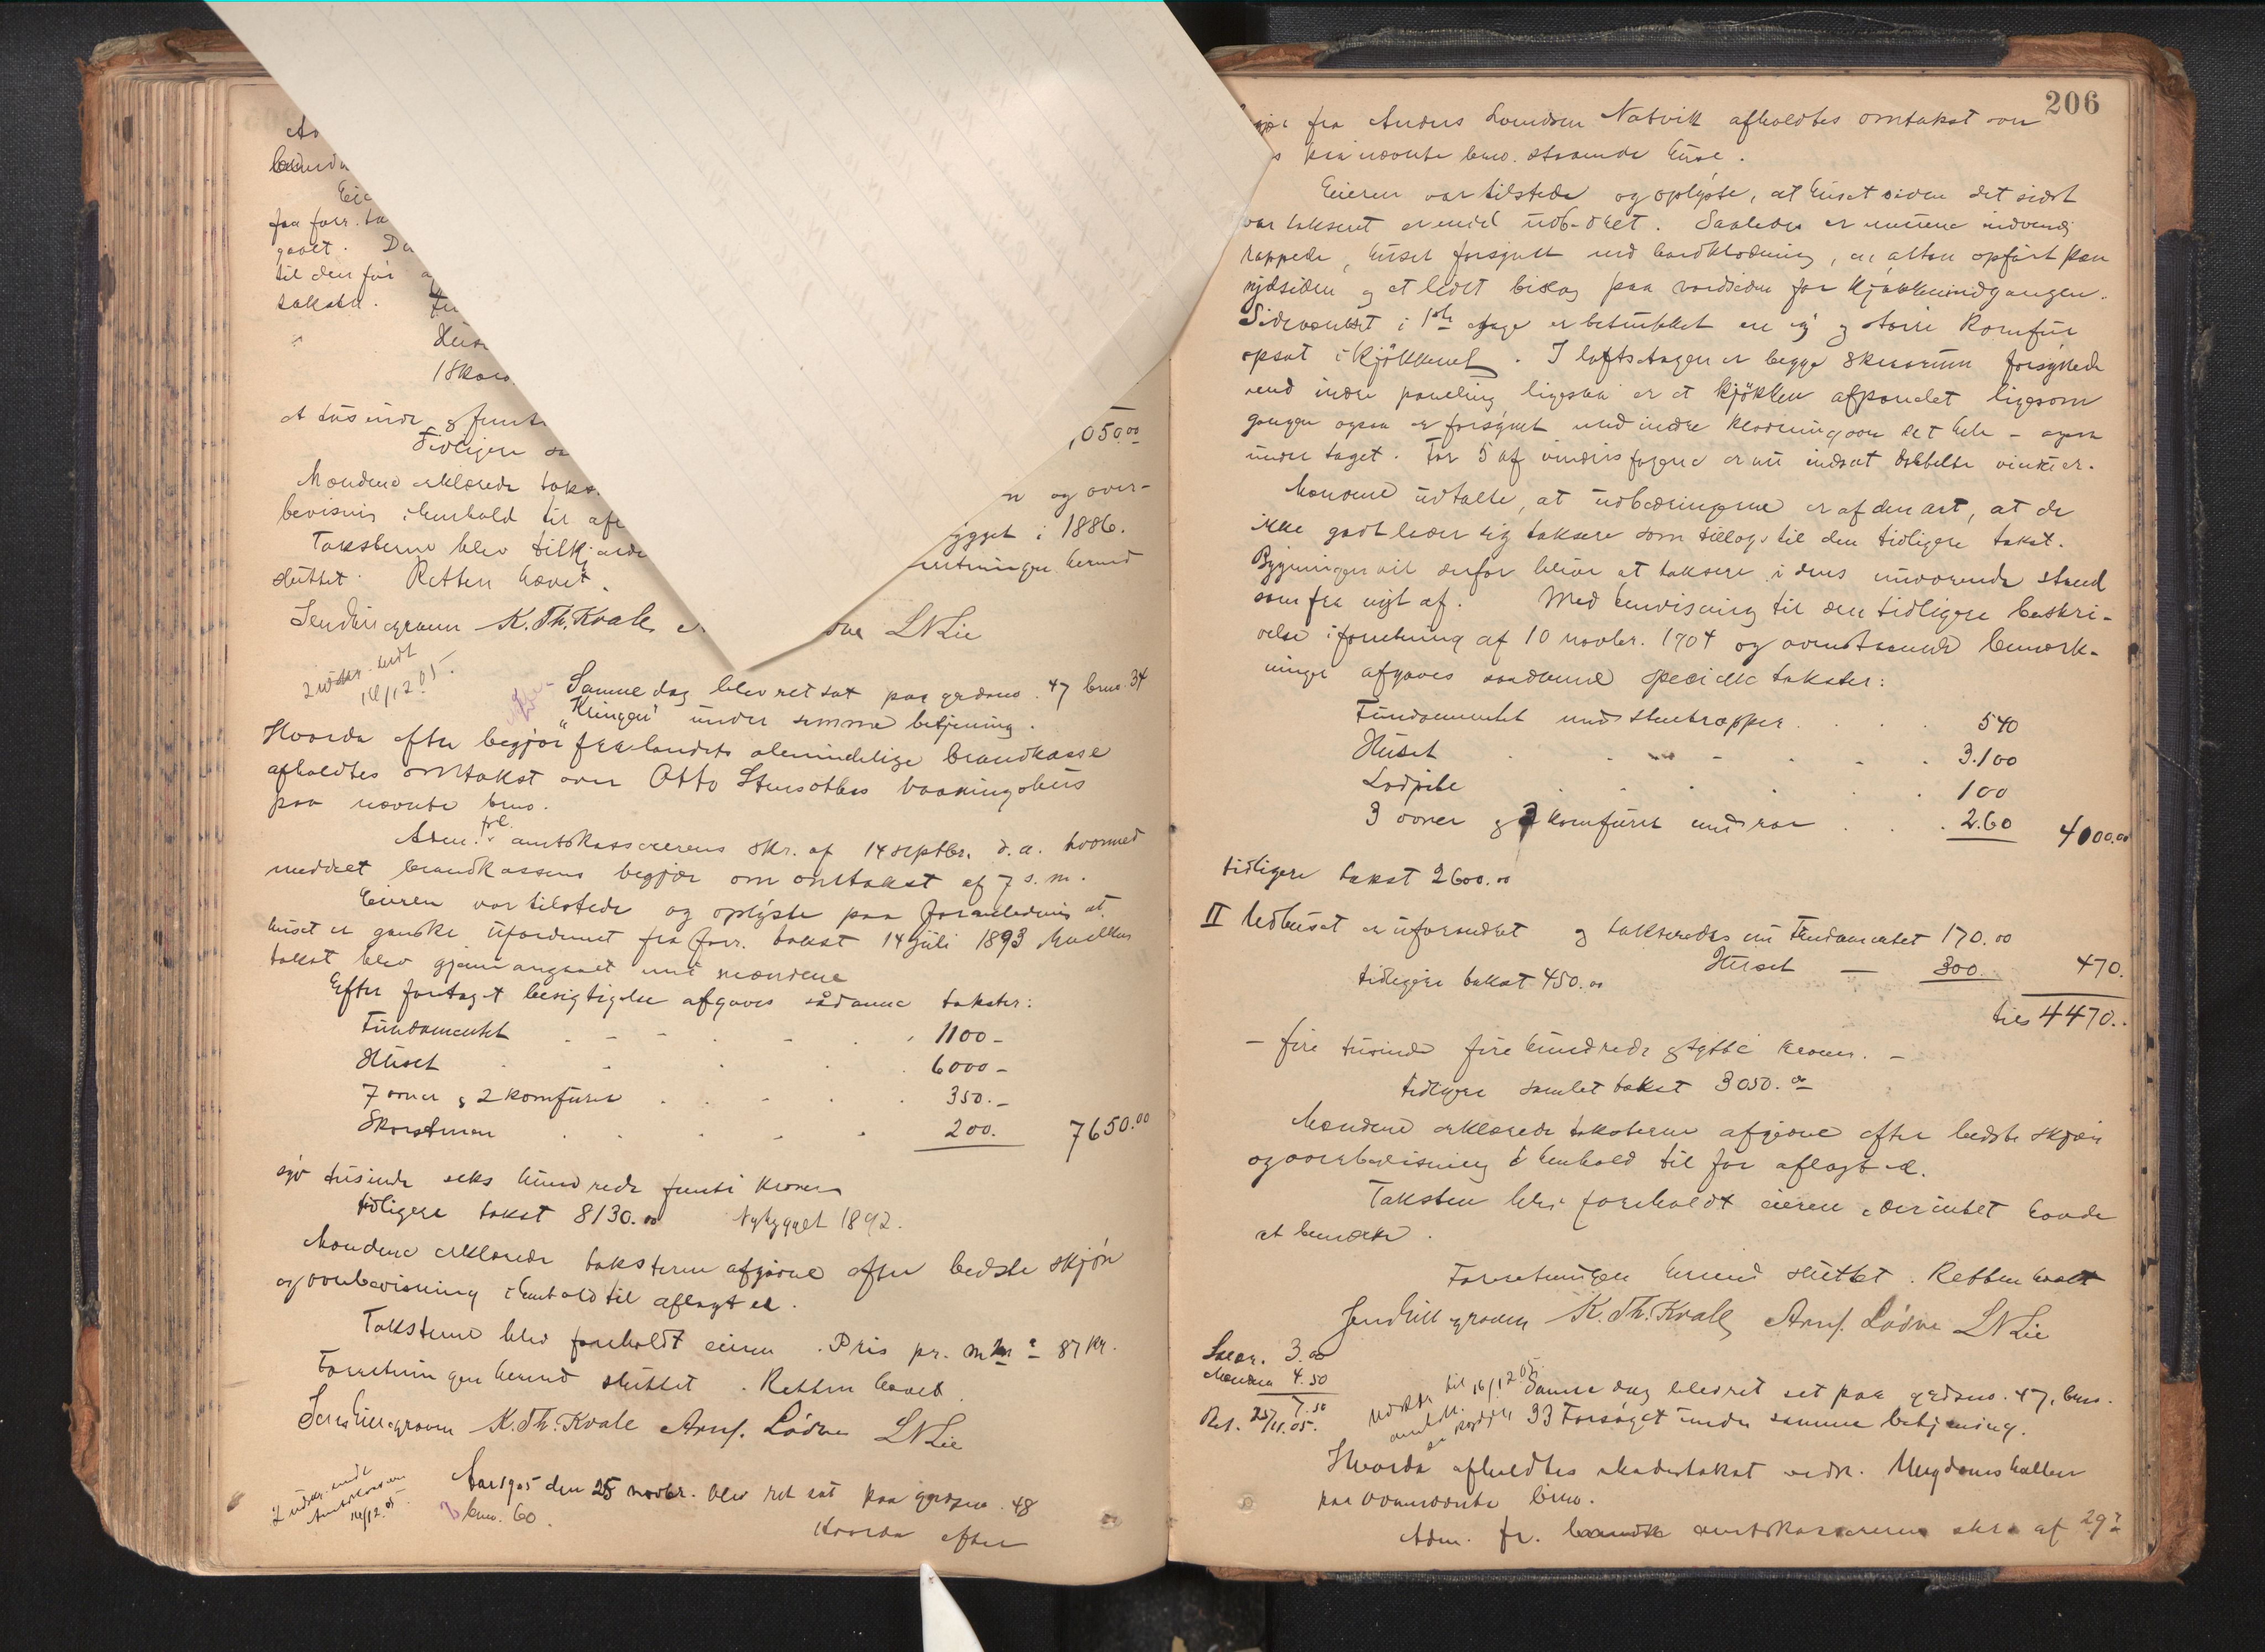 faa forr.
gaaet.
til den før
taksten.
Huset
et tusinde og femti
,050.00
Tidligere
Mændene erklærede
n og over-
bevisning i henhold til
ygget i 1886.
Taksterne blev
retningen hermed
sluttet. Retten hævet.
Lendhirigraven K. Th. Kvale LNLie
2 udskr. sendt
16/12 05.
Samme dag blev ret sat paa grdsno. 47 brno. 34
"Klingen" under samme betjening.
Hvorda efter begjær fra landets almindelige brandkasse
afholdtes omtakst over Otto Stensethes vaaningshus
paa nævnte brno.
Adm. fr. amtskassererens skr. af 14 septbr. d.a. hvormed
meddelt brandkassens begjær om omtakst af 7 s.m.
Eieren var tilstede og oplyste paa foranledning at
huset er ganske uforandret fra forr. takst 14 juli 1893 hvilken
takst blev gjennemgaaet med mændene
Efter foretaget besigtigelse afgaves sådanne takster:
Fundamentet 1100 -
Huset 6000 -
7 ovner og 2 komfurer 350. -
Skorstenen 200. 7650.00
syv tusinde seks hundrede femti kroner
tidligere takst 8130.00 Nybygget 1892.
Mændene erklærede taksterne afgivne efter bedste skjøn
og overbevisning i henhold til aflagt ed.
Taksterne blev foreholdt eieren. Pris pr. m² 87 kr.
Forretningen hermed sluttet. Retten hævet.
K. Th. Kvale Arnf. Lødve LNLie
2 udskr. sendt
amtskassereren
16/12 05.
Aar 1905 den 25 novbr. blev ret sat paa grdsno. 48
brno. 60.
Hvorda efter
206
fra Anders Natvik afholdtes omtakst over
paa nævnte brno. staaende huse.
Eieren var tilstede og oplyste, at huset siden det sidst
var takseret er meget udbedret. Saaledes er murene indvendig
rappede, huset forsynet med bordklædning, en altan opført paa
sydsiden og et lidet bislag paa nordsiden for kjøkkenindgangen.
Sideværelset i 1ste etage er betrukket en ny og større komfur
opsat i kjøkkenet. I loftsetagen er begge skraarum forsynede
med indre paneling ligesaa er et kjøkken afpanelet ligesom
gangen ogsaa er forsynet med indre klædning over det hele - ogsaa
under taget. For 5 af vindusfagene er nu indsat dobbelte vinduer.
Mændene udtalte, at udbedringerne er af den art, at de
ikke godt lader sig taksere som tillæg til den tidligere takst.
Bygningen vil derfor blive at taksere i dens nuværende stand
som fra nyt af. Med henvisning til den tidligere beskri-
velse i forretning af 10 novbr. 1904 og ovenstaaende bemærk-
ninger afgaves saadanne specielle takster:
Fundamentet med stentrapper 540
Huset 3.100
Lodpibe 100
3 ovner og 2 komfurer med rør 2.60 4000.00
tidligere takst 2600.00
II Vedhuset er uforandret og takseredes nu Fundamentet 170.00
Huset — 300. 470.
tidligere takst 450.00
tils 4470..
- fire tusinde fire hundrede og sytti kroner. -
tidligere samlet takst 3050.00
Mændene erklærede taksterne afgivne efter bedste skjøn
og overbevisning i henhold til før aflagt ed.
Taksten blev foreholdt eieren, der intet havde
at bemærke.
Forretningen hermed sluttet. Retten hævet
K. Th. Kvale Arnf. Lødve LNLie
Salær. 3.00
Mændene 4.50
7.50
Bet. 25/11.05.
til 16/12 05.
Samme dag blev ret sat paa grdsno. 47, brno.
33 Forsøget under samme betjening.
Hvorda afholdtes skadestakst vedr. Ungdomshallen
paa ovennævnte brno.
Adm. fr. amtskassererens skr. af 29